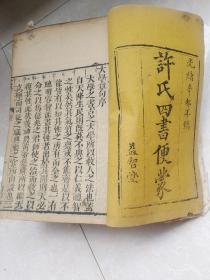 光緒辛卯年鐫
許氏四書便蒙
益智堂
大學章句序
大學之書古之大學所以教人之法也蓋
自天降生民則既莫不與之以仁義禮智
之性矣然其氣質之稟或不能齊是以不
能皆有以知其性之所有而全之也一有
聰明睿智能盡其性者出於其間則天必
命之以為億兆之君師使之治而教之以
復其性此伏羲神農黃帝堯舜所以繼天
立極而司徒之職典樂之官所由設也